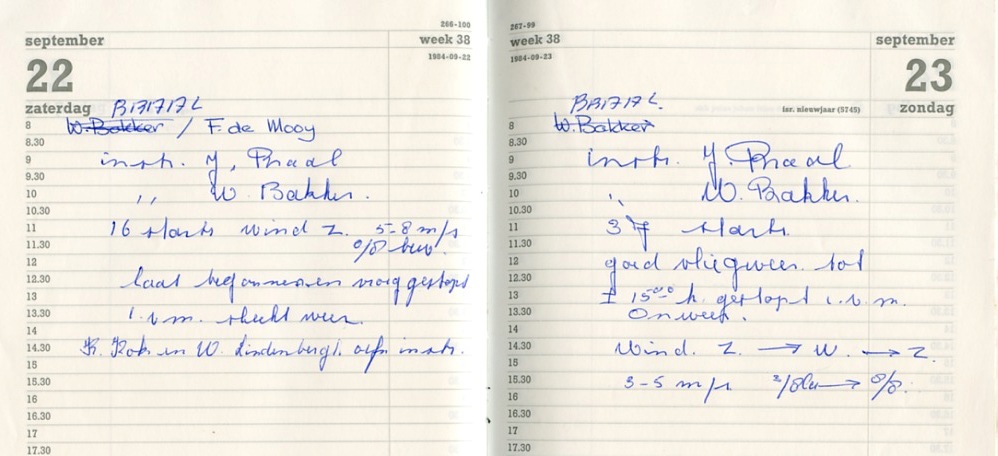 266-100
september week 38
22 1984-09-22
zaterdag
W. Bakker / F. de Mooy
8
8.30
9 instr. J. Praal
9.30
10 ,, W. Bakker.
10.30
11 16 starts wind Z. 5-8 m/s
11.30 8/8 bew.
12
12.30 laat begonnen en vroeg gestopt
13
13.30 i.v.m. slecht weer.
14
14.30 K. Kok en W. Lindenbergh asp. instr.
15
15.30
16
16.30
17
17.30
267-99
week 38 september
1984-09-23 23
isr. nieuwjaar (5745) zondag
8 W. Bakker
8.30
9 instr. J. Praal
9.30
10 ,, W. Bakker.
10.30
11 37 starts.
11.30
12 goed vliegweer tot
12.30
13 ± 15.00 h. gestopt i.v.m.
13.30 Onweer.
14
14.30 Wind. Z. → W. → Z.
15
15.30 3-5 m/s → 8/8.
16
16.30
17
17.30